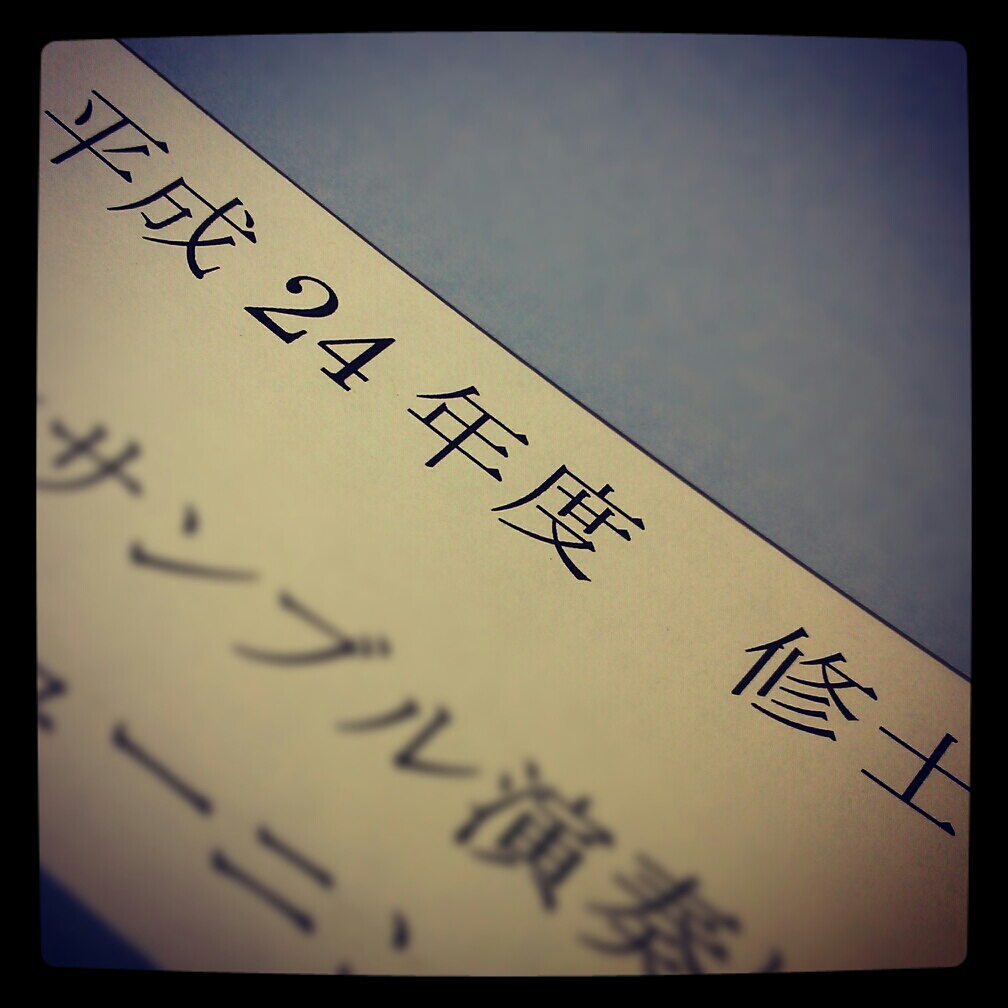 平成 24 年度 修士
サンブル演奏
ーニン